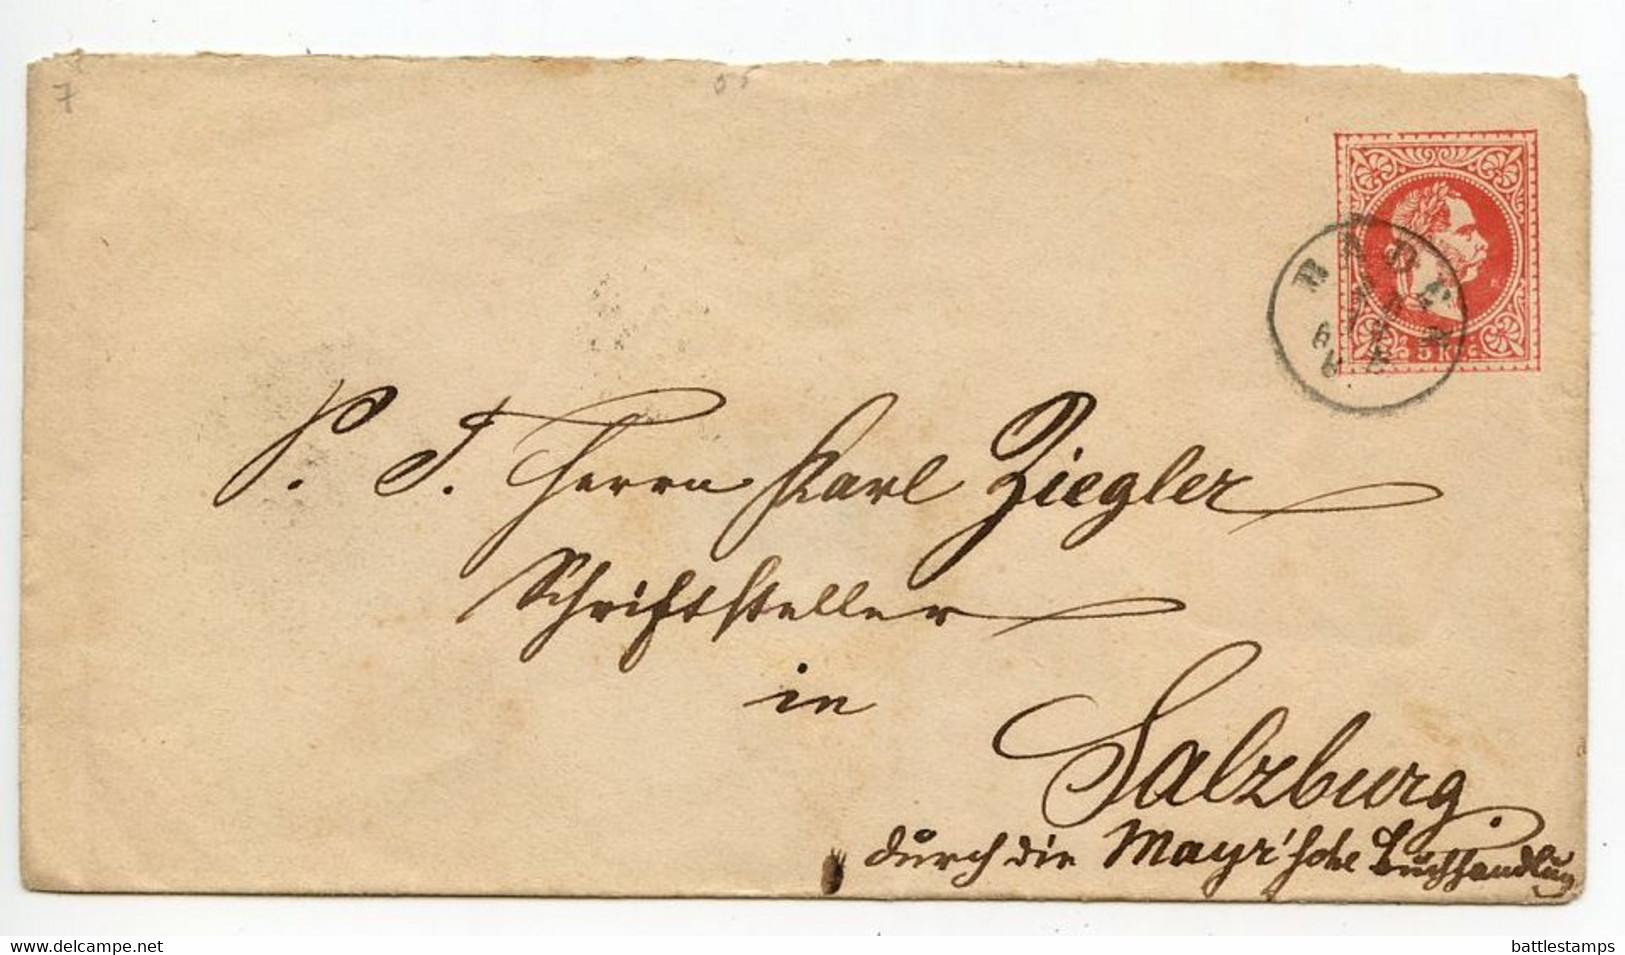 7
05
BADEN
5 KR.
P. T. Herrn Karl Ziegler
Schriftsteller
in
Salzburg.
durch die Mayr'sche Buchhandlung
delcampe.net
battlestamps